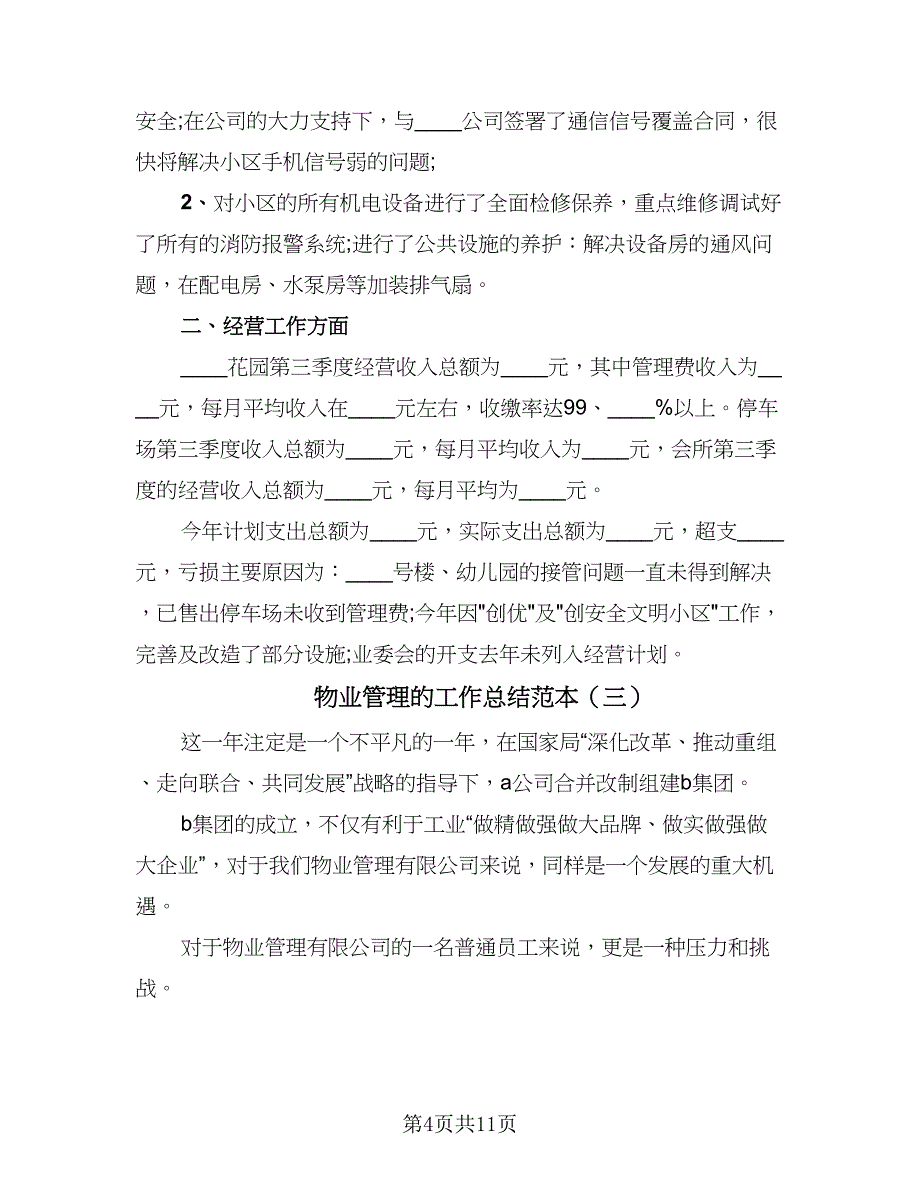 安全;在公司的大力支持下，与____公司签署了通信信号覆盖合同，很
快将解决小区手机信号弱的问题;
2、对小区的所有机电设备进行了全面检修保养，重点维修调试好
了所有的消防报警系统;进行了公共设施的养护：解决设备房的通风问
题，在配电房、水泵房等加装排气扇。
二、经营工作方面
____花园第三季度经营收入总额为____元，其中管理费收入为__
__元，每月平均收入在____元左右，收缴率达99、____%以上。停车
场第三季度收入总额为____元，每月平均收入为____元，会所第三季
度的经营收入总额为____元，每月平均为____元。
今年计划支出总额为____元，实际支出总额为____元，超支____
元，亏损主要原因为：____号楼、幼儿园的接管问题一直未得到解决
，已售出停车场未收到管理费;今年因"创优"及"创安全文明小区"工作，
完善及改造了部分设施;业委会的开支去年未列入经营计划。
物业管理的工作总结范本（三）
这一年注定是一个不平凡的一年，在国家局“深化改革、推动重组
、走向联合、共同发展”战略的指导下，a公司合并改制组建b集团。
b集团的成立，不仅有利于工业“做精做强做大品牌、做实做强做
大企业”，对于我们物业管理有限公司来说，同样是一个发展的重大机
遇。
对于物业管理有限公司的一名普通员工来说，更是一种压力和挑
战。
第4页共11页